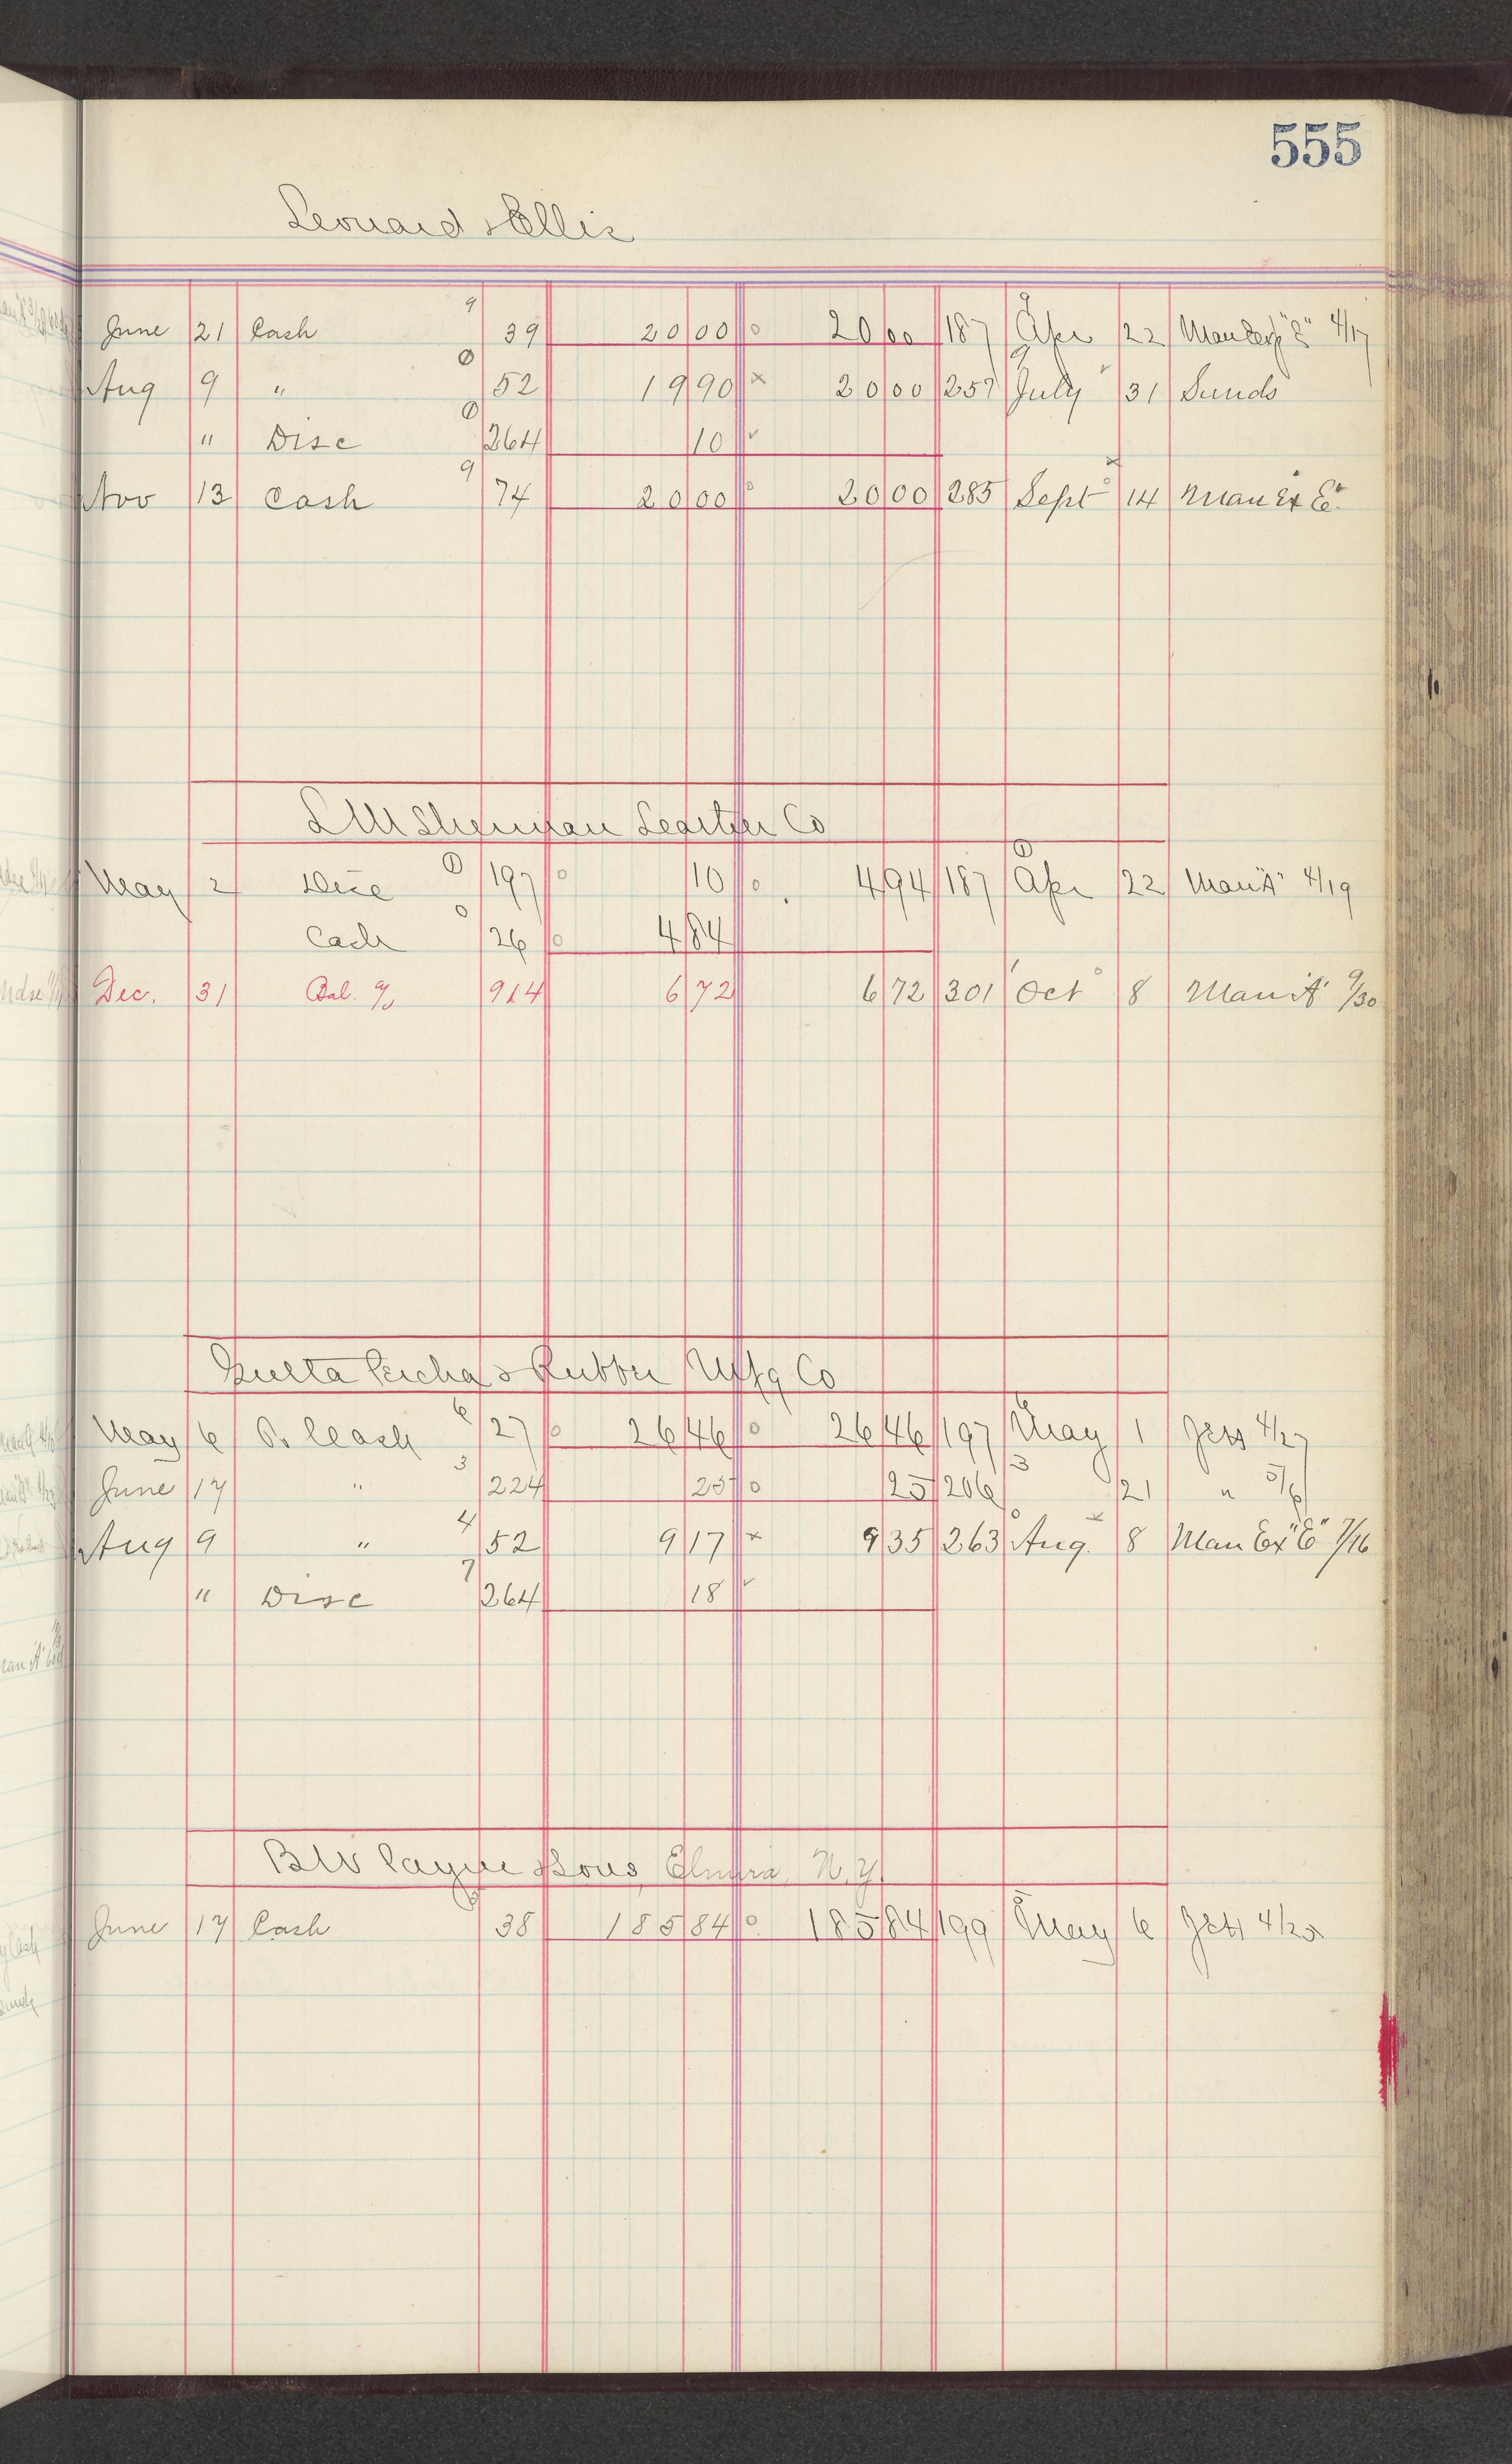 555
Leonard & Ellis
June 21 Cash 9 39 20 00 20 00 187 Apr 22 "E" 4/17
Aug 9 " 0 52 19 90 x 20 00 257 July 31 Sunds
" Disc 0 264 10
Nov 13 Cash 9 74 20 00 20 00 285 Sept 14 Man Ex "E"
Sherman Leather Co
May 2 Disc 197 10 4 94 187 Apr 22 Man "A" 4/19
Cash 26 4 84
Dec. 31 Bal. 914 6 72 6 72 301 Oct 8 Man "A" 9/30
Gutta Percha & Rubber Mfg Co
May 6 Cash 6 27 26 46 26 46 197 May 1 4/27
June 17 " 3 224 25 25 206 21 " 5/6
Aug 9 " 4 52 9 17 x 9 35 263 Aug. 8 Man Ex "E" 7/16
" Disc 7 264 18
B W Payne & Sons, Elmira, N.Y.
June 17 Cash 38 185 84 185 84 199 May 6 4/25